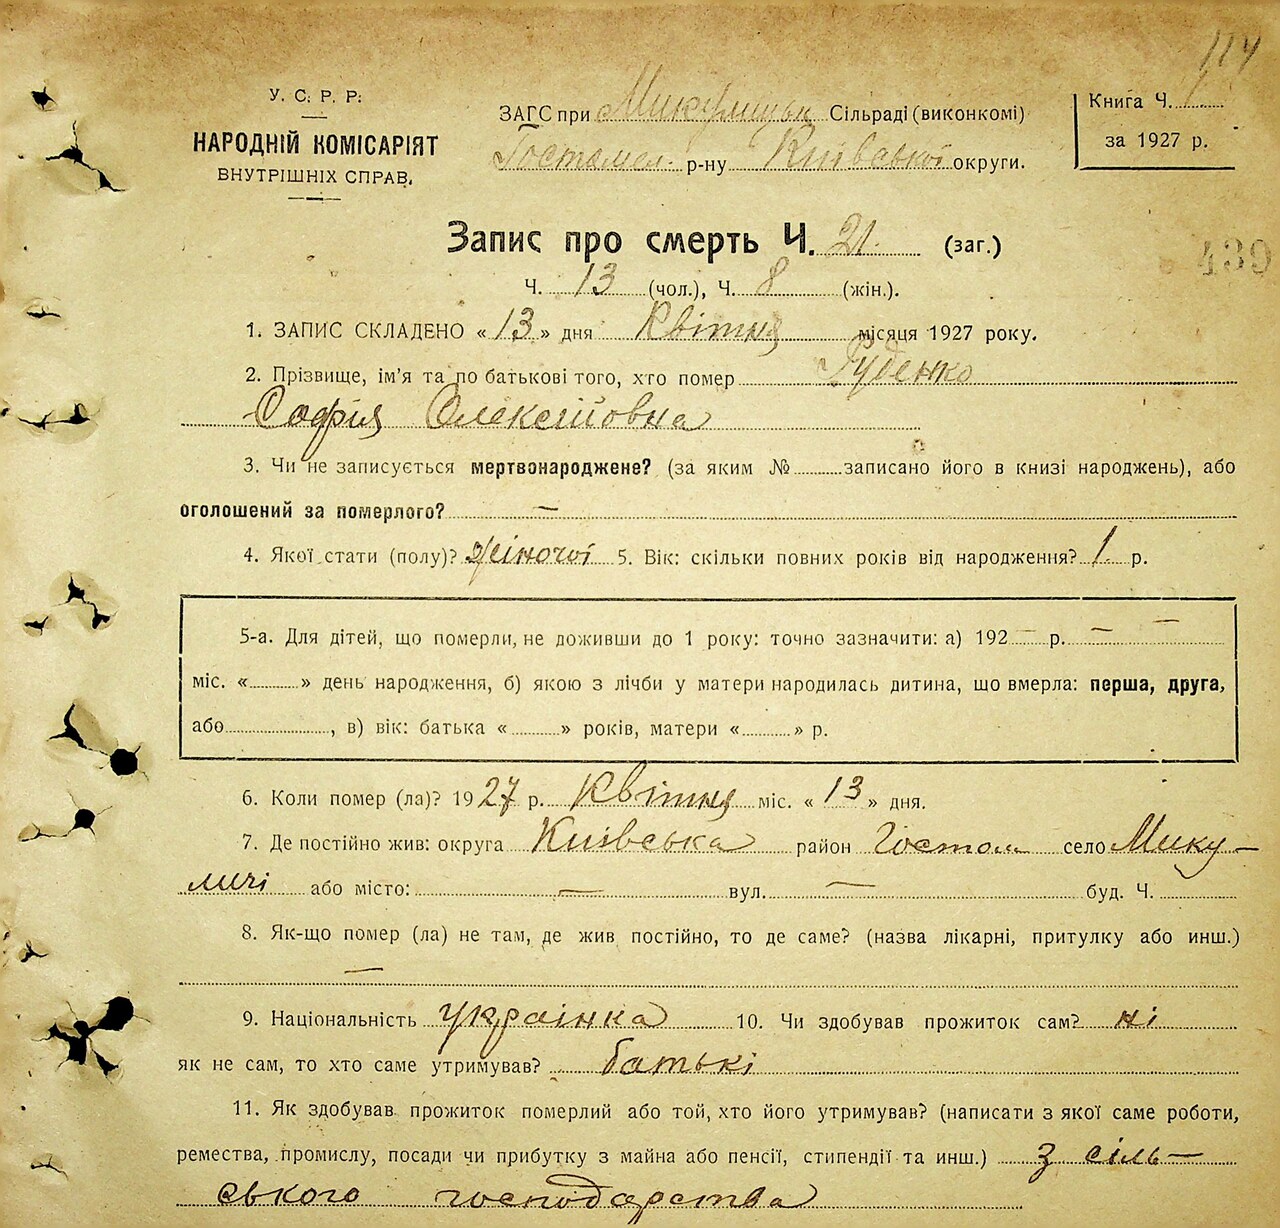 114
У. С. Р. Р.
НАРОДНІЙ КОМІСАРІЯТ
ВНУТРІШНІХ СПРАВ.
ЗАГС при Микулицьк Сільраді (виконкомі)
Гостомел. р-ну Київської округи.
Книга Ч. 1
за 1927 р.
Запис про смерть Ч. 21. (заг.)
439
Ч. 13 (чол.), Ч. 8 (жін.).
1. ЗАПИС СКЛАДЕНО « 13 » дня Квітня місяця 1927 року.
2. Прізвище, ім'я та по батькові того, хто помер Руденко
Софія Олексіївна
3. Чи не записується мертвонароджене? (за яким № записано його в книзі народжень), або
оголошений за померлого? —
4. Якої стати (полу)? жіночої 5. Вік: скільки повних років від народження? 1. р.
5-а. Для дітей, що померли, не доживши до 1 року: точно зазначити: а) 192 — р. — —
міс. « » день народження, б) якою з лічби у матери народилась дитина, що вмерла: перша, друга,
або , в) вік: батька « » років, матери « » р.
6. Коли помер (ла)? 1927 р. Квітня міс. « 13 » дня.
7. Де постійно жив: округа Київська район Гостом село Мику-
личі або місто: — вул. — буд. Ч.
8. Як-що помер (ла) не там, де жив постійно, то де саме? (назва лікарні, притулку або инш.)
—
9. Національність українка 10. Чи здобував прожиток сам? ні
як не сам, то хто саме утримував? батькі
11. Як здобував прожиток померлий або той, хто його утримував? (написати з якої саме роботи,
ремества, промислу, посади чи прибутку з майна або пенсії, стипендії та инш.) з сіль-
ського господарства